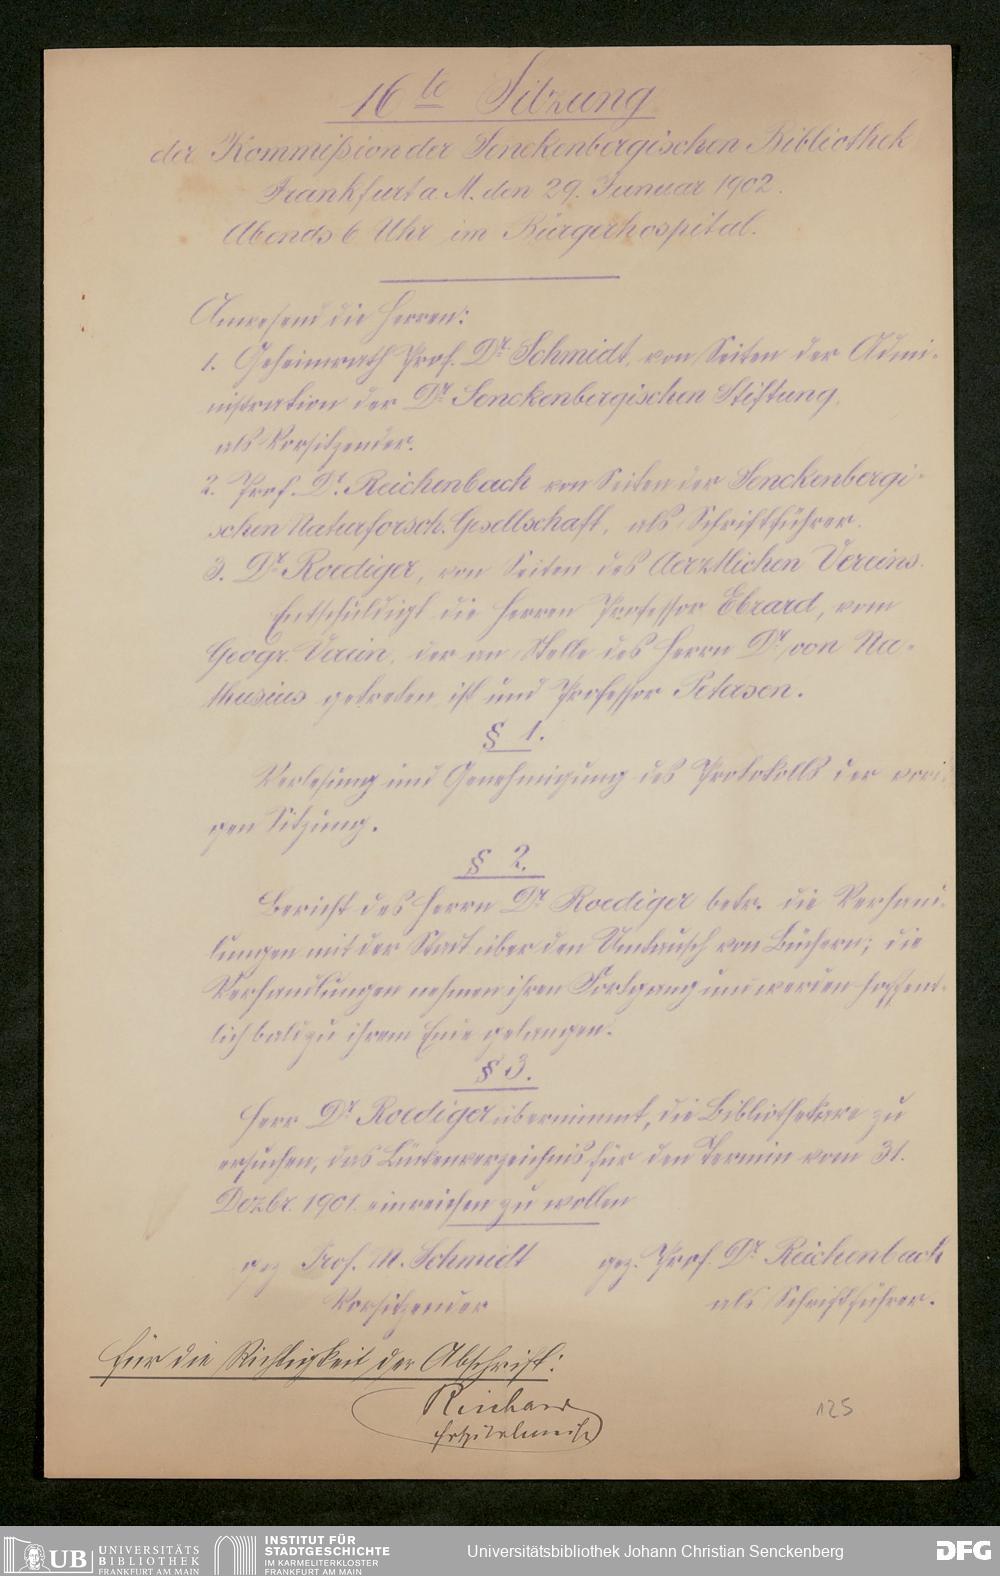 16te Sitzung
der Kommißion der Senckenbergischen Bibliothek
Frankfurt a. M. den 29. Januar 1902.
Abends 6 Uhr im Bürgerhospital.
Anwesend die Herren:
1. Geheimrath Prof. Dr. Schmidt, von Seiten der Admi-
nistration der Dr. Senckenbergischen Stiftung,
als Vorsitzender.
2. Prof. Dr. Reichenbach von Seiten der Senckenbergi-
schen Naturforsch. Gesellschaft, als Schriftführer.
3. Dr. Roediger, von Seiten des Aerztlichen Vereins.
Entschuldigt die Herren Professor Ebrard, vom
Geogr. Verein, der an Stelle des Herrn Dr. von Na-
thusius getreten ist und Professor Petersen.
§ 1.
Verlesung und Genehmigung des Protokolls der vori-
gen Sitzung.
§ 2.
Bericht des Herrn Dr. Roediger betr. die Verhand-
lungen mit der Stadt über den Umtausch von Büchern; die
Verhandlungen nehmen ihren Fortgang und werden hoffent-
lich bald zu ihrem Ende gelangen.
§ 3.
Herr Dr. Roediger übernimmt, die Bibliothekare zu
ersuchen, das Lückenverzeichnis für den Termin vom 31.
Dezbr. 1901. einreichen zu wollen
gez. Prof. M. Schmidt gez. Prof. Dr. Reichenbach
Vorsitzender als Schriftführer.
Für die Richtigkeit der Abschrift:
Reichard
125
UB UNIVERSITÄTS
BIBLIOTHEK
FRANKFURT AM MAIN
INSTITUT FÜR
STADTGESCHICHTE
IM KARMELITERKLOSTER
FRANKFURT AM MAIN
Universitätsbibliothek Johann Christian Senckenberg
DFG